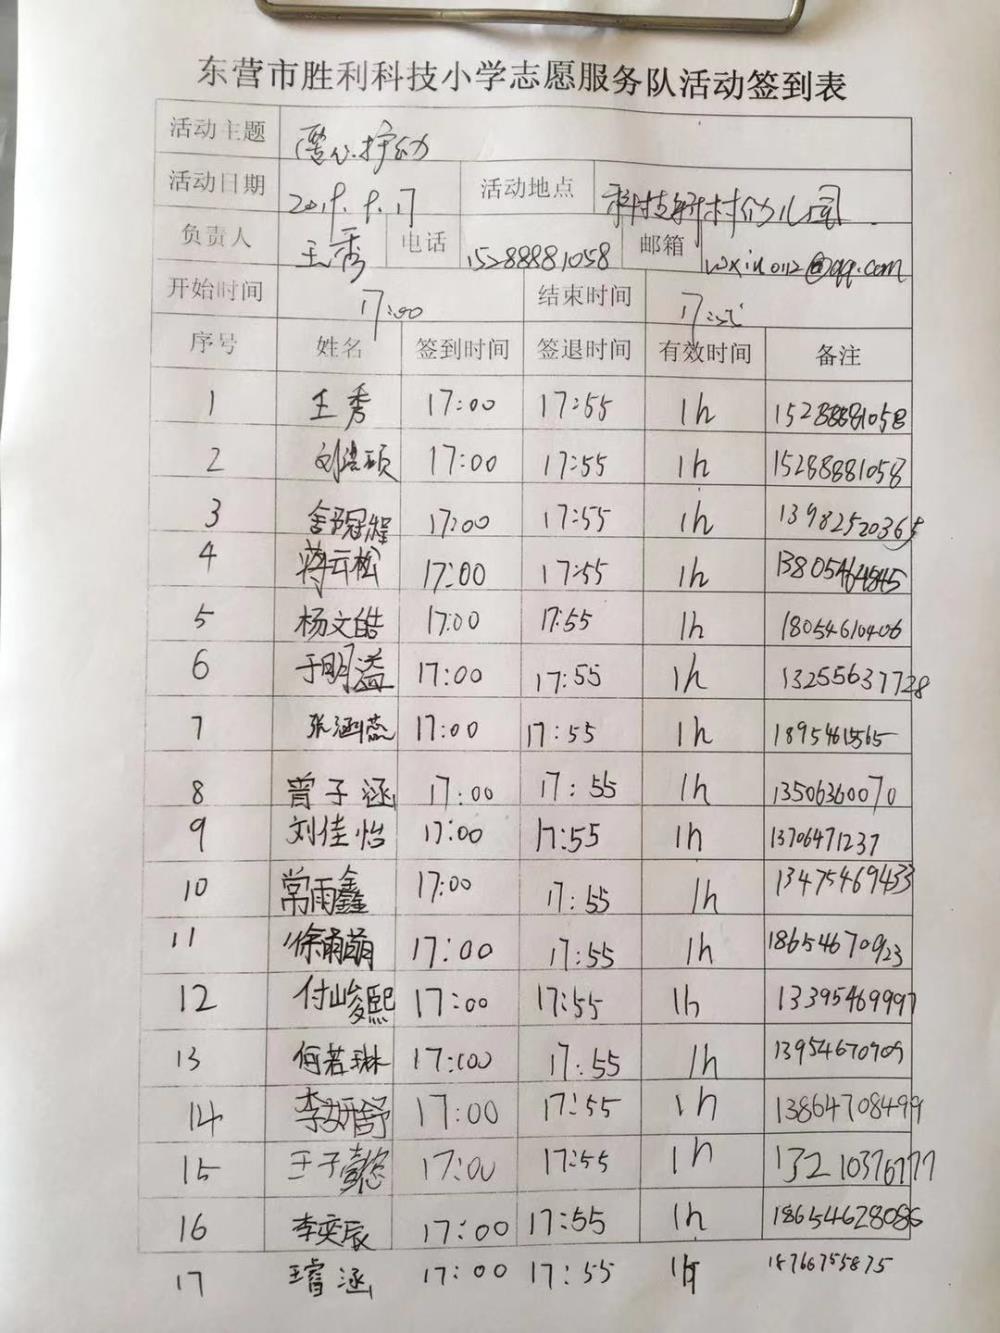 东营市胜利科技小学志愿服务队活动签到表
活动主题 护幼
活动日期 2019.9.17 活动地点 科技新村幼儿园
负责人 王秀 电话 15288881058 邮箱 wxiu0112@qq.com
开始时间 17:00 结束时间 17:55
序号 姓名 签到时间 签退时间 有效时间 备注
1 王秀 17:00 17:55 1h 15288881058
2 刘浩硕 17:00 17:55 1h 15288881058
3 舒冠程 17:00 17:55 1h 13982520365
4 蒋云松 17:00 17:55 1h 13805464845
5 杨文皓 17:00 17:55 1h 18054610406
6 于明溢 17:00 17:55 1h 13255637728
7 张涵蕊 17:00 17:55 1h
8 曾子涵 17:00 17:55 1h 13506360070
9 刘佳怡 17:00 17:55 1h 13706471237
10 常雨鑫 17:00 17:55 1h 13475469433
11 徐雨萌 17:00 17:55 1h 18654670923
12 付峻熙 17:00 17:55 1h 13395469997
13 何若琳 17:00 17:55 1h 13954670909
14 李妍舒 17:00 17:55 1h 13864708499
15 王子懿 17:00 17:55 1h 13210376777
16 李奕辰 17:00 17:55 1h 18654628086
17 王睿涵 17:00 17:55 1h 18766755875